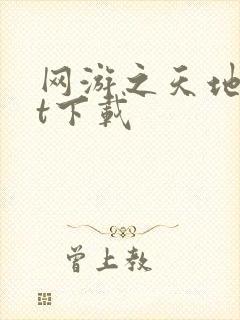 网游之天地
t下载
曾上教